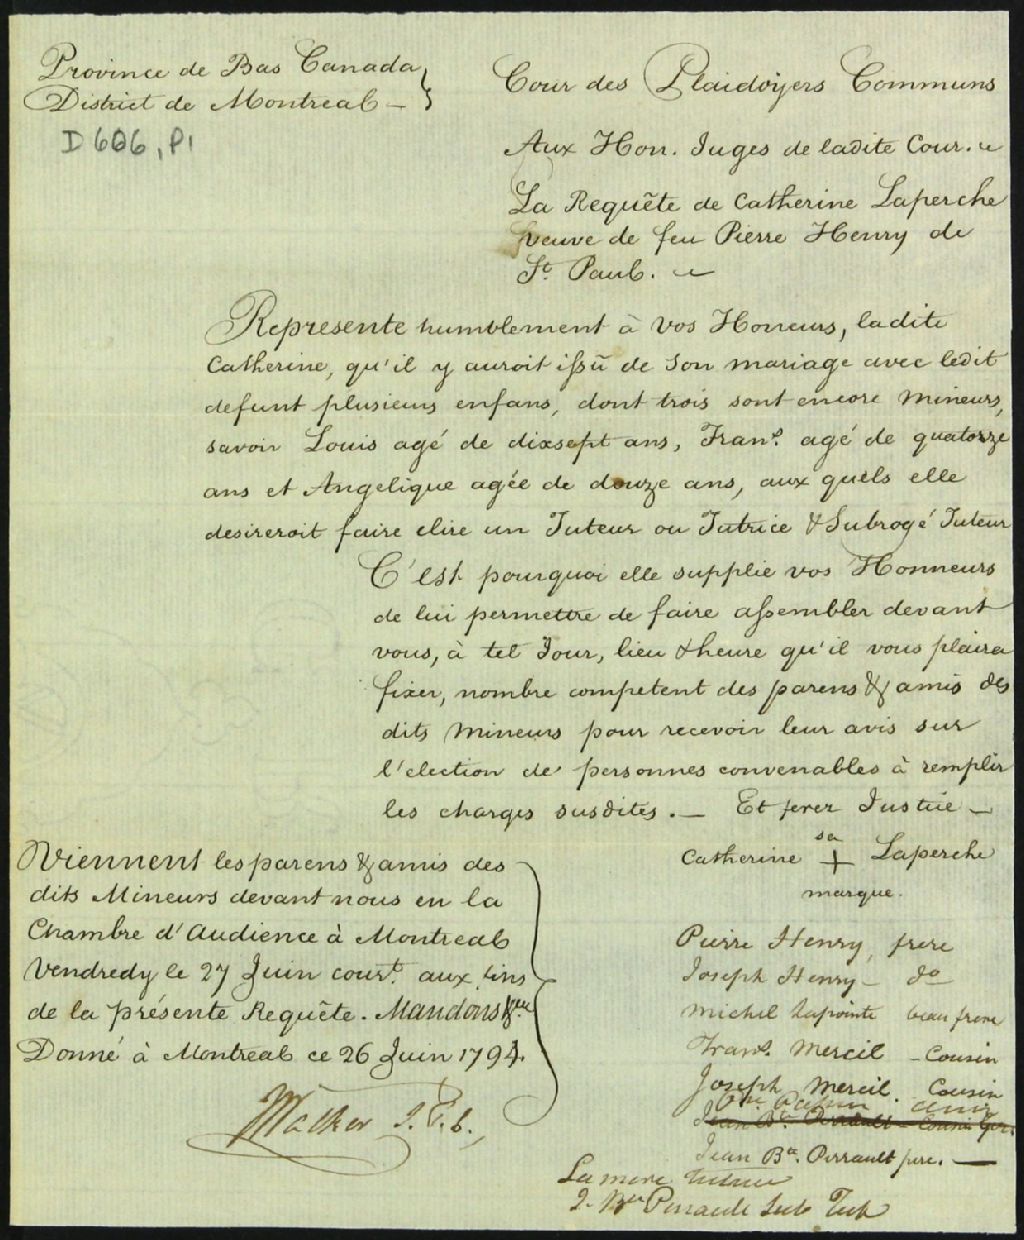 Province de Bas Canada
District de Montreal —
D 606, P1
Cour des Plaidoyers Communs
Aux Hon. Juges de ladite Cour.
La Requête de Catherine Laperche
veuve de feu Pierre Henry de
St. Paul.
Represente humblement à vos Honeurs, ladite
Catherine, qu'il y auroit issû de son mariage avec ledit
defunt plusieurs enfans, dont trois sont encore Mineurs,
savoir Louis agé de dixsept ans, Frans. agé de quatorze
ans et Angelique agée de douze ans, aux quels elle
desireroit faire elire un Tuteur ou Tutrice & Subrogé Tuteur
C'est pourquoi elle supplie vos Honneurs
de lui permettre de faire assembler devant
vous, à tel Jour, lieu & heure qu'il vous plaira
fixer, nombre competent des parens & amis des
dits Mineurs pour recevoir leur avis sur
l'election de personnes convenables à remplir
les charges susdites. — Et ferez Justice —
sa
Catherine + Laperche
marque.
Viennent les parens & amis des
dits Mineurs devant nous en la
Chambre d'Audience à Montreal
Vendredy le 27 Juin court. aux fins
de la présente Requête. Mandons &ca
Donné à Montreal ce 26 Juin 1794.
Walker J.P.C.,
Pierre Henry, frere
Joseph Henry — do
Michel Lapointe beau frere
Frans. Merceil — Cousin
Joseph Merceil. Cousin
amis
Jean Bte. Perrault — Cousin
Jean Bte. Perrault pere. —
La mere tutrice
J. Bte Perrault Sub Tut